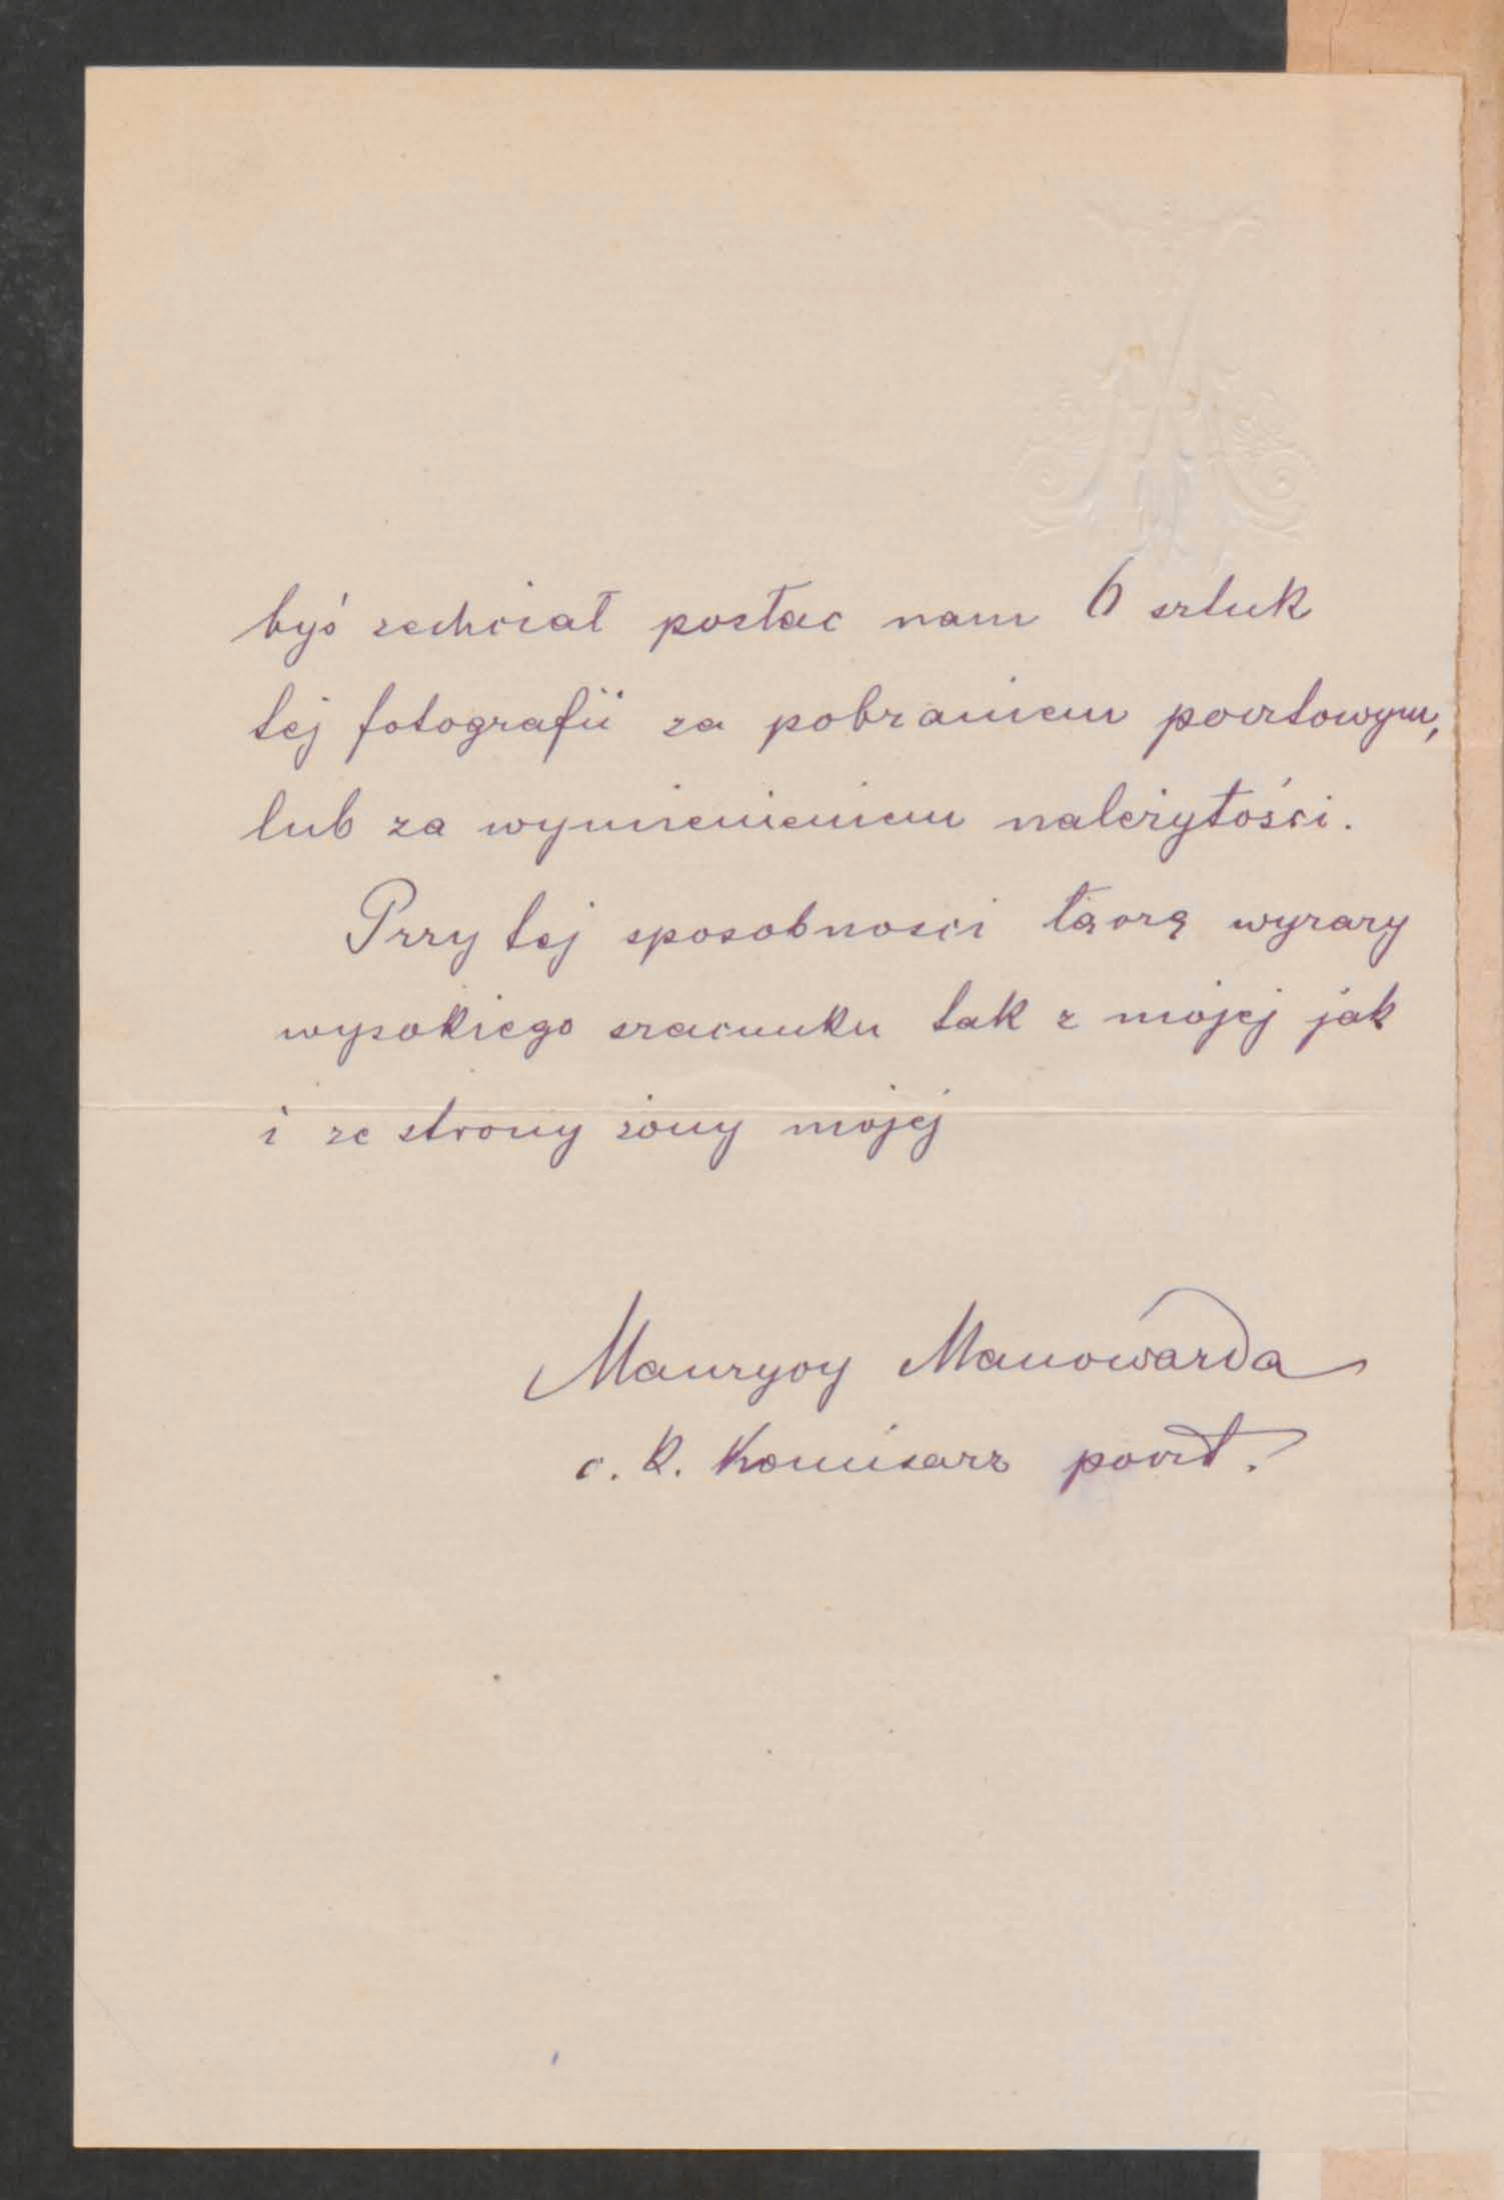 byś zechciał posłac nam 6 sztuk
tej fotografii za pobraniem pocztowym,
lub za wymienieniem należytości.
Przy tej sposobnosci łączą wyrazy
wysokiego szacunku tak z mojej jak
i ze strony żony mojej
Maurycy Manowarda
c. k. Komisarz powt.